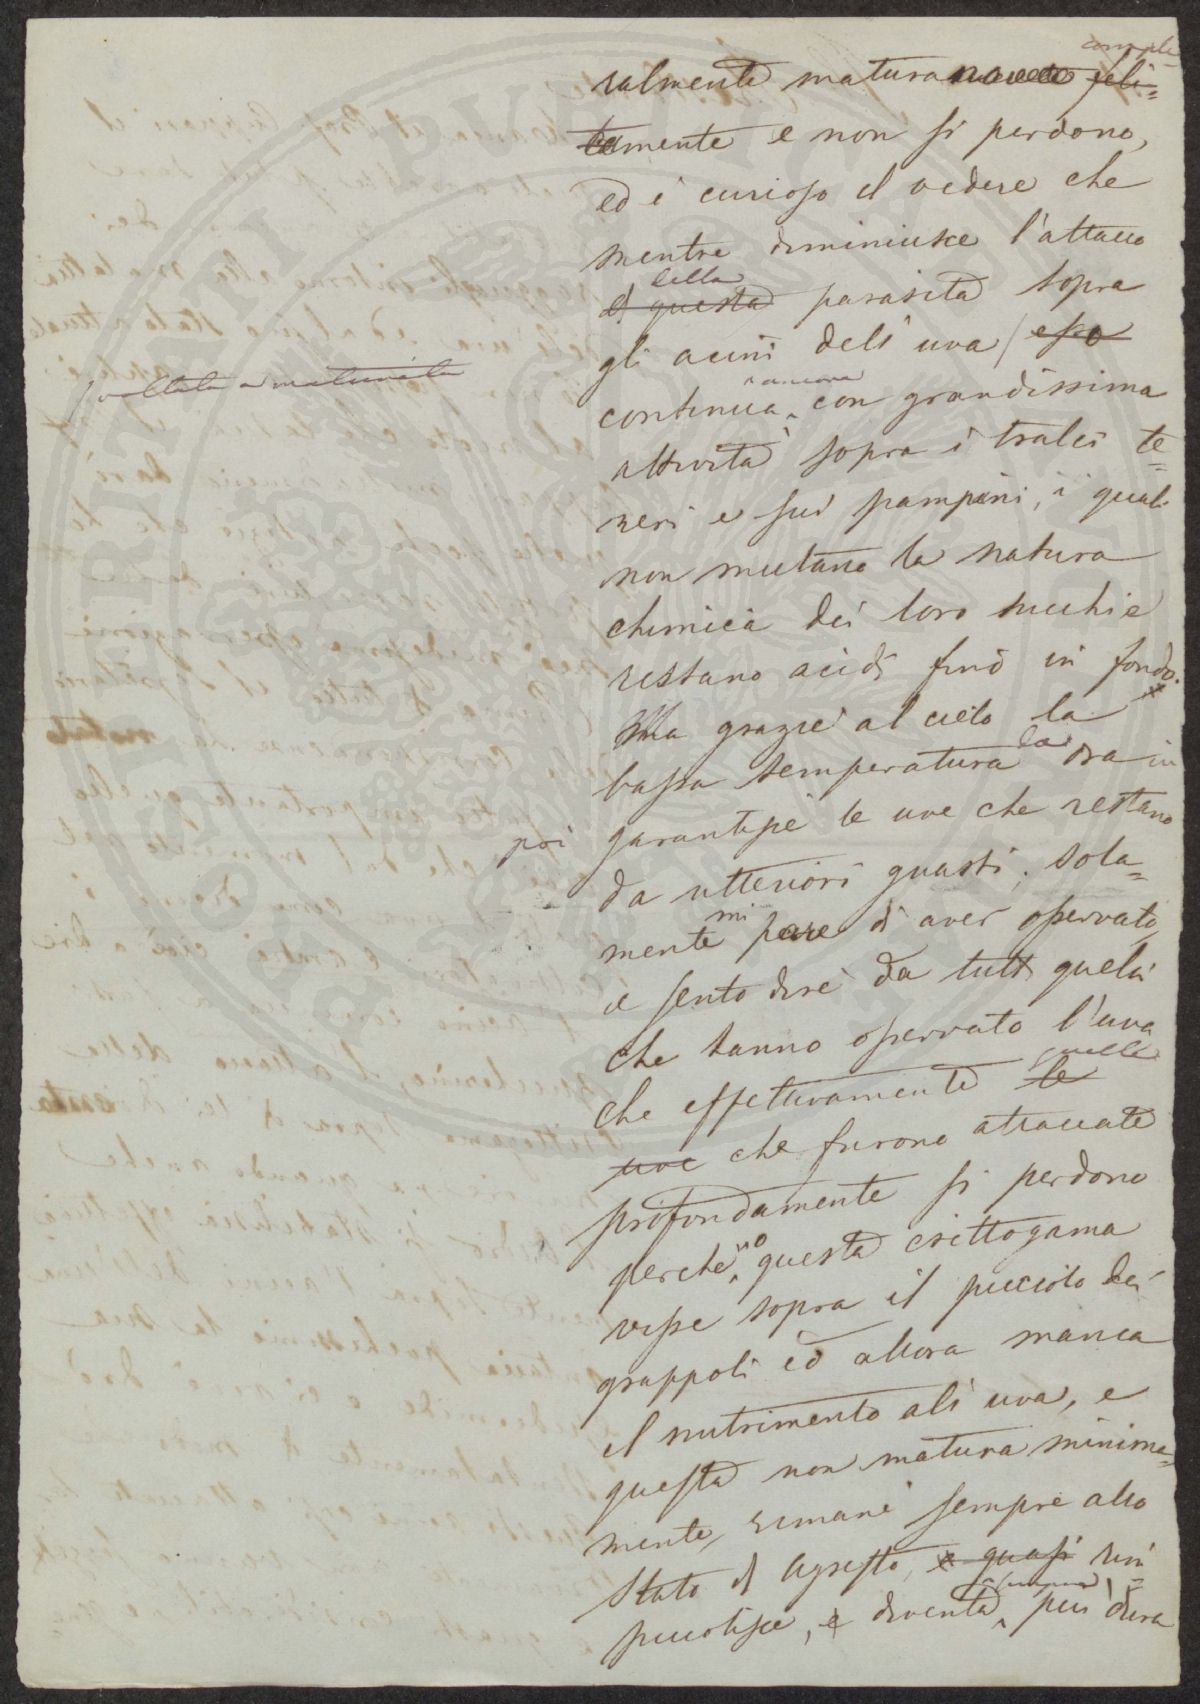 comple-
ralmente maturano feli-
tamente e non si perdono,
ed è curioso il vedere che
mentre diminuisce l'attacco
della
di questa parasita sopra
gli acini dell'uva / esso
voltata a maturità
ancora
continua con grandissima
attività sopra i tralci te-
neri e sui pampini, i quali
non mutano la natura
chimica dei loro succhi e
restano acidi fino in fondo.
Ma grazie al cielo la
bassa temperatura ora in
poi garantisce le uve che restano
da ulteriori guasti. Sola-
mente mi pare di aver osservato
e sento dire da tutti quelli
che hanno osservato l'uva
quelle
che effettivamente le
uve che furono attaccate
profondamente si perdono
perché questa crittogama
visse sopra il picciolo dei
grappoli ed allora manca
il nutrimento all'uva, e
questa non matura minima-
mente, rimane sempre allo
stato di agresto, e quasi rim
picciolisce, e diventa più dura